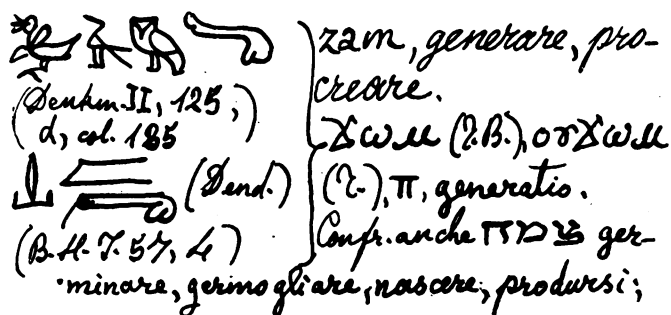 (Denkm. II, 125,
d, col. 185)
(Dend.)
(B. H. T. 57, 4)
zam, generare, pro-
creare.
ϫⲱⲙ (T.B.), ϫⲱⲙ
(T.), ⲡ, generatio.
Confr. anche צמח ger-
minare, germogliare, nascere, prodursi;